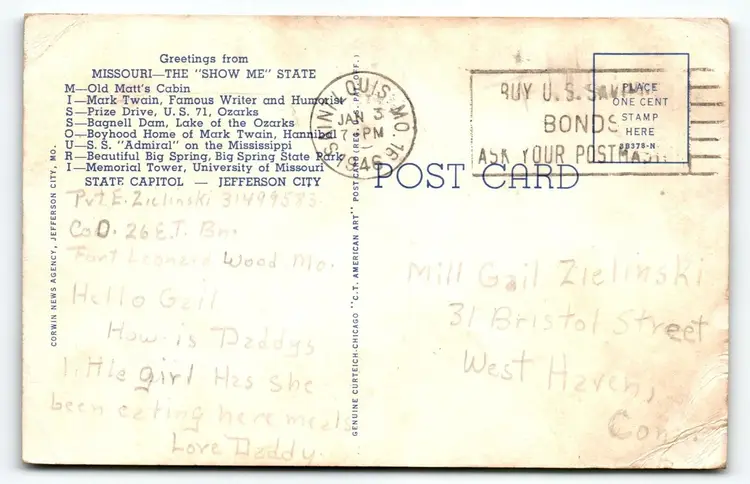 Greetings from
MISSOURI—THE "SHOW ME" STATE
M—Old Matt's Cabin
I—Mark Twain, Famous Writer and Humorist
S—Prize Drive, U.S. 71, Ozarks
S—Bagnell Dam, Lake of the Ozarks
O—Boyhood Home of Mark Twain, Hannibal
U—S.S. "Admiral" on the Mississippi
R—Beautiful Big Spring, Big Spring State Park
I—Memorial Tower, University of Missouri
STATE CAPITOL — JEFFERSON CITY
CORWIN NEWS AGENCY, JEFFERSON CITY, MO.
Pvt. E. Zielinski 31499583
Co D. 26 E.T. Bn.
Fort Leonard Wood Mo.
Hello Gail
How is Daddys
little girl Has she
been eating here meals
Love Daddy.
GENUINE CURTEICH-CHICAGO "C.T. AMERICAN ART" POST CARD (REG. U.S. PAT. OFF.)
SAINT LOUIS, MO. 16
JAN 3
7 PM
1946
BUY U.S. SAVINGS
BONDS
ASK YOUR POSTMASTER
PLACE
ONE CENT
STAMP
HERE
8B378-N
POST CARD
Mill Gail Zielinski
31 Bristol Street
West Haven,
Conn.